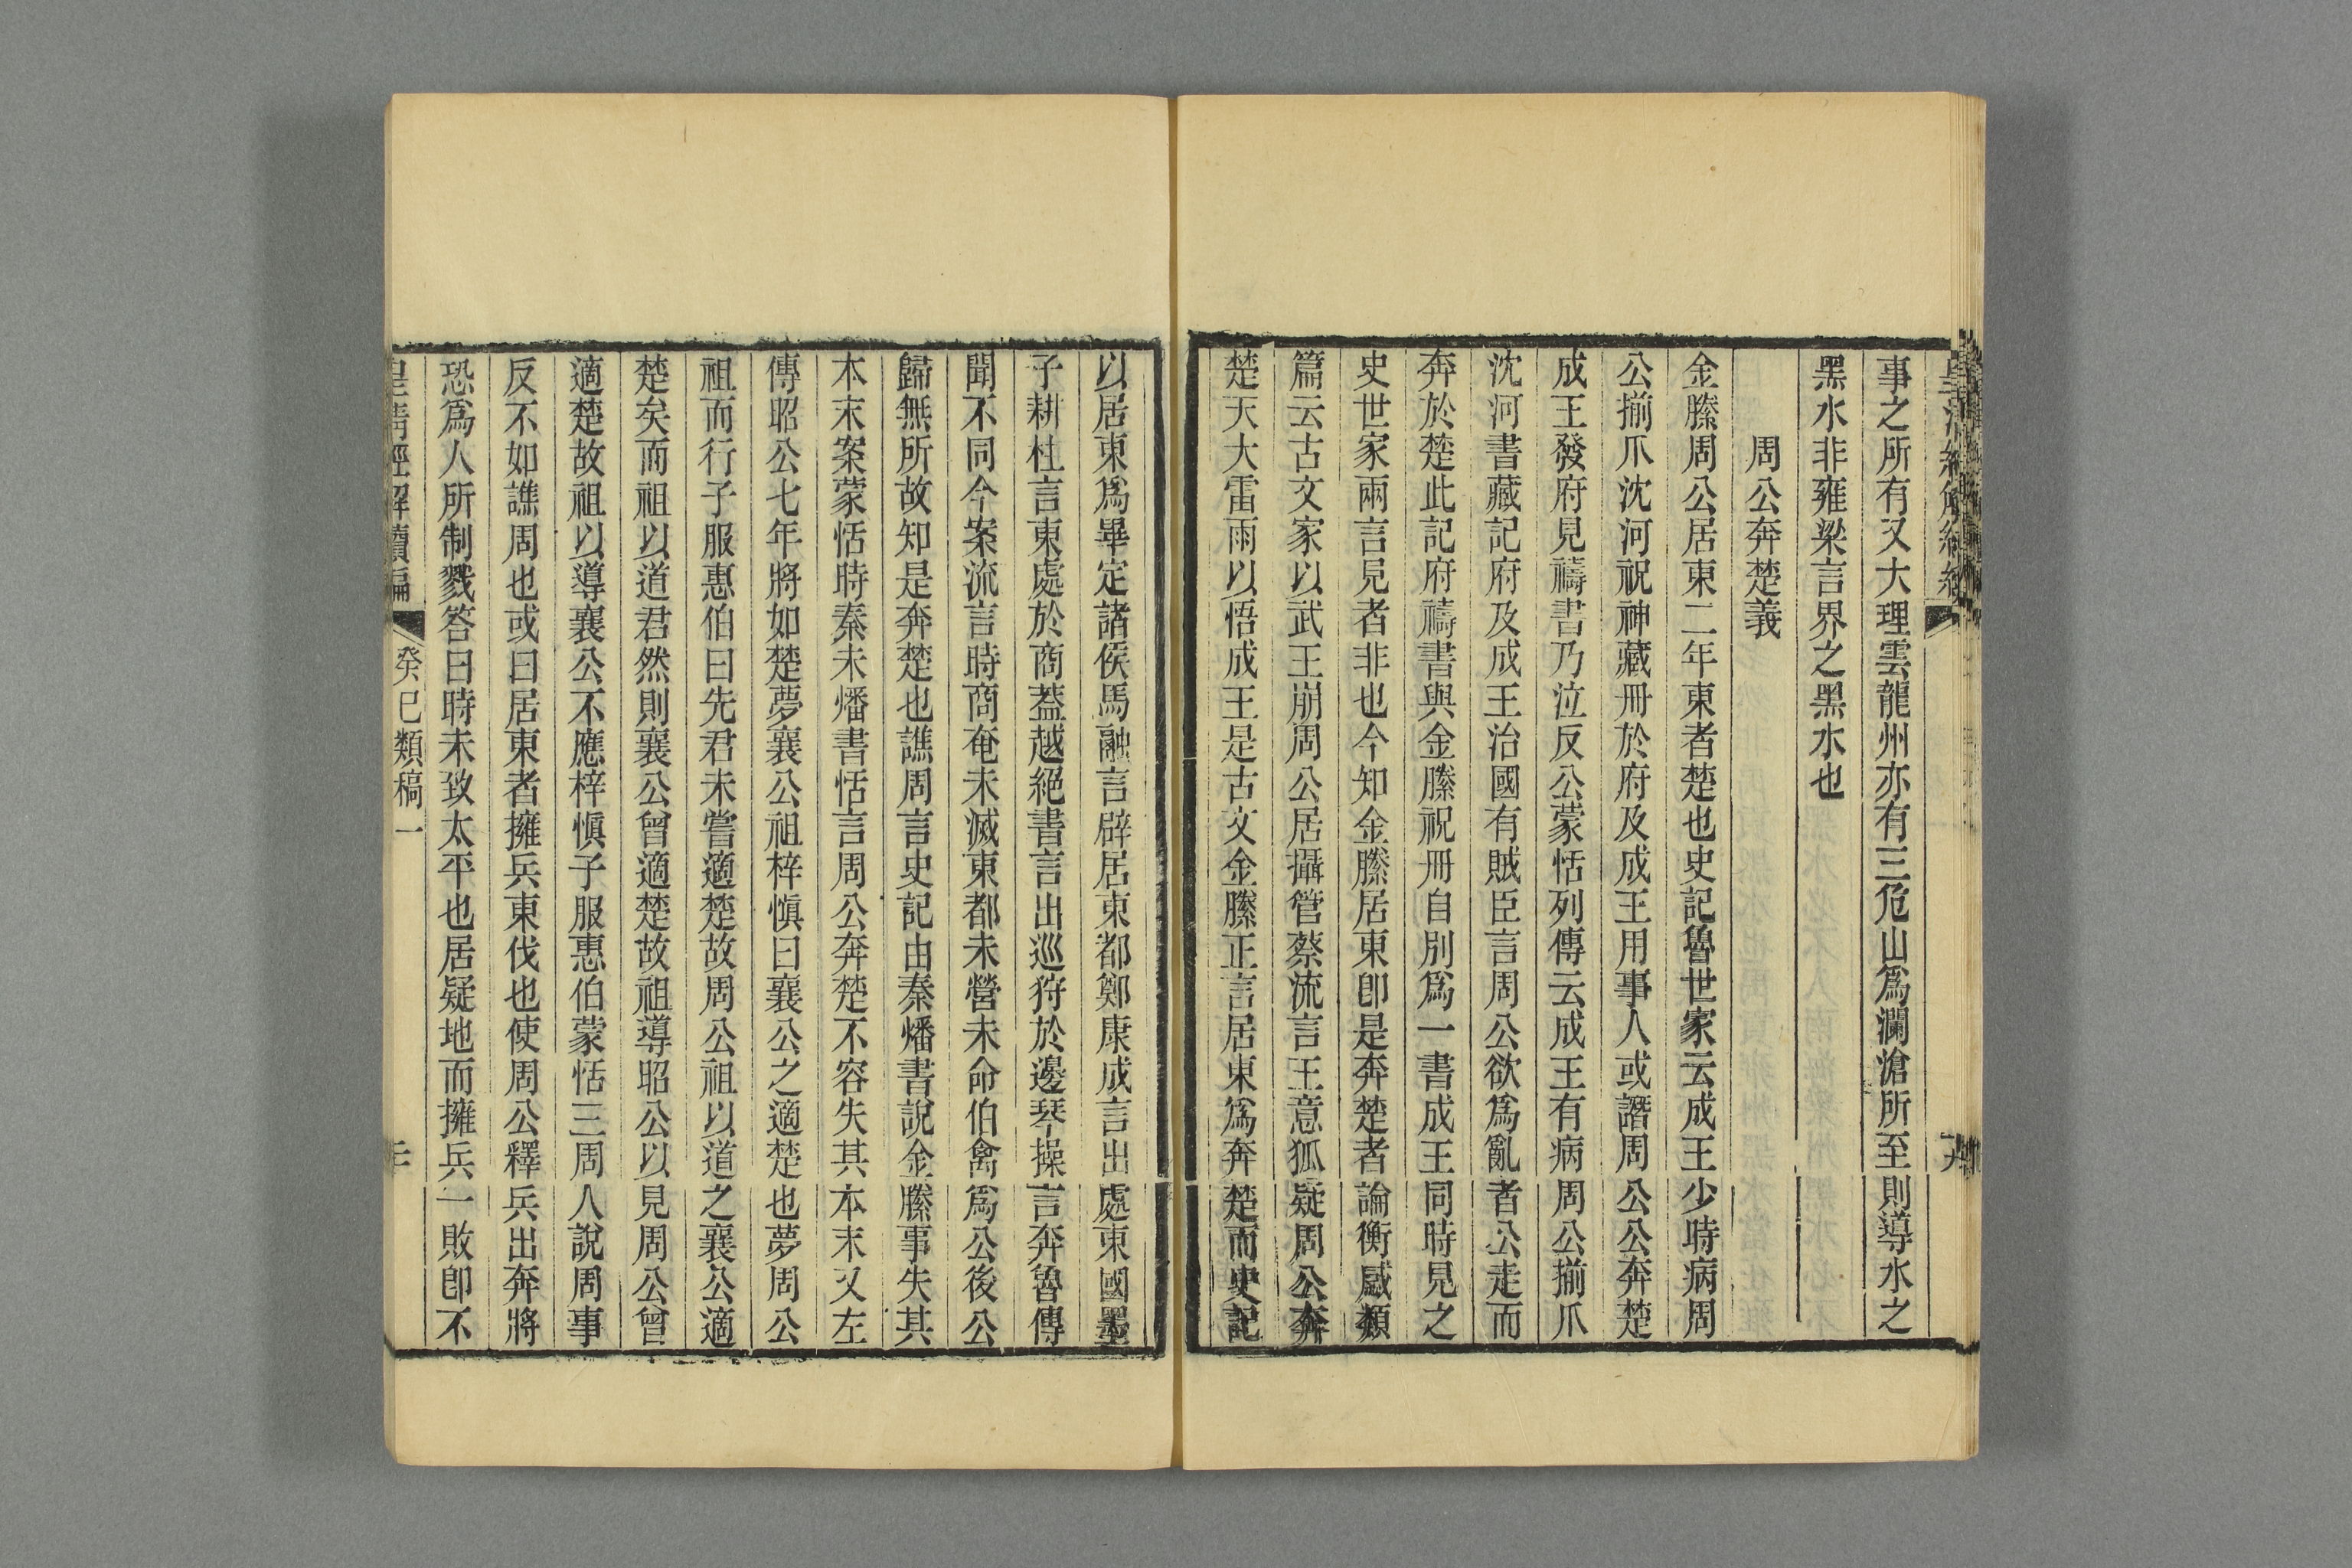 事之所有又大理雲龍州亦有三危山爲瀾滄所至則導水之
黑水非雍梁言界之黑水也
周公奔楚義
金縢周公居東二年東者楚也史記魯世家云成王少時病周
公揃爪沈河祝神藏冊於府及成王用事人或譖周公公奔楚
成王發府見禱書乃泣反公蒙恬列傳云成王有病周公揃爪
沈河書藏記府及成王治國有賊臣言周公欲爲亂者公走而
奔於楚此記府禱書與金縢祝冊自別爲一書成王同時見之
史世家兩言見者非也今知金縢居東卽是奔楚者論衡感類
篇云古文家以武王崩周公居攝管蔡流言王意狐疑周公奔
楚天大雷雨以悟成王是古文金縢正言居東爲奔楚而史記
以居東爲畢定諸侯馬融言辟居東都鄭康成言出處東國墨
子耕柱言東處於商蓋越絕書言出巡狩於邊琴操言奔魯傳
聞不同今案流言時商奄未滅東都未營未命伯禽爲公後公
歸無所故知是奔楚也譙周言史記由秦燔書說金縢事失其
本末案蒙恬時秦未燔書恬言周公奔楚不容失其本末又左
傳昭公七年將如楚夢襄公祖梓愼曰襄公之適楚也夢周公
祖而行子服惠伯曰先君未嘗適楚故周公祖以道之襄公適
楚矣而祖以道君然則襄公曾適楚故祖導昭公以見周公曾
適楚故祖以導襄公不應梓愼子服惠伯蒙恬三周人說周事
反不如譙周也或曰居東者擁兵東伐也使周公釋兵出奔將
恐爲人所制戮答曰時未致太平也居疑地而擁兵一敗卽不
皇清經解續編 癸巳類稿一